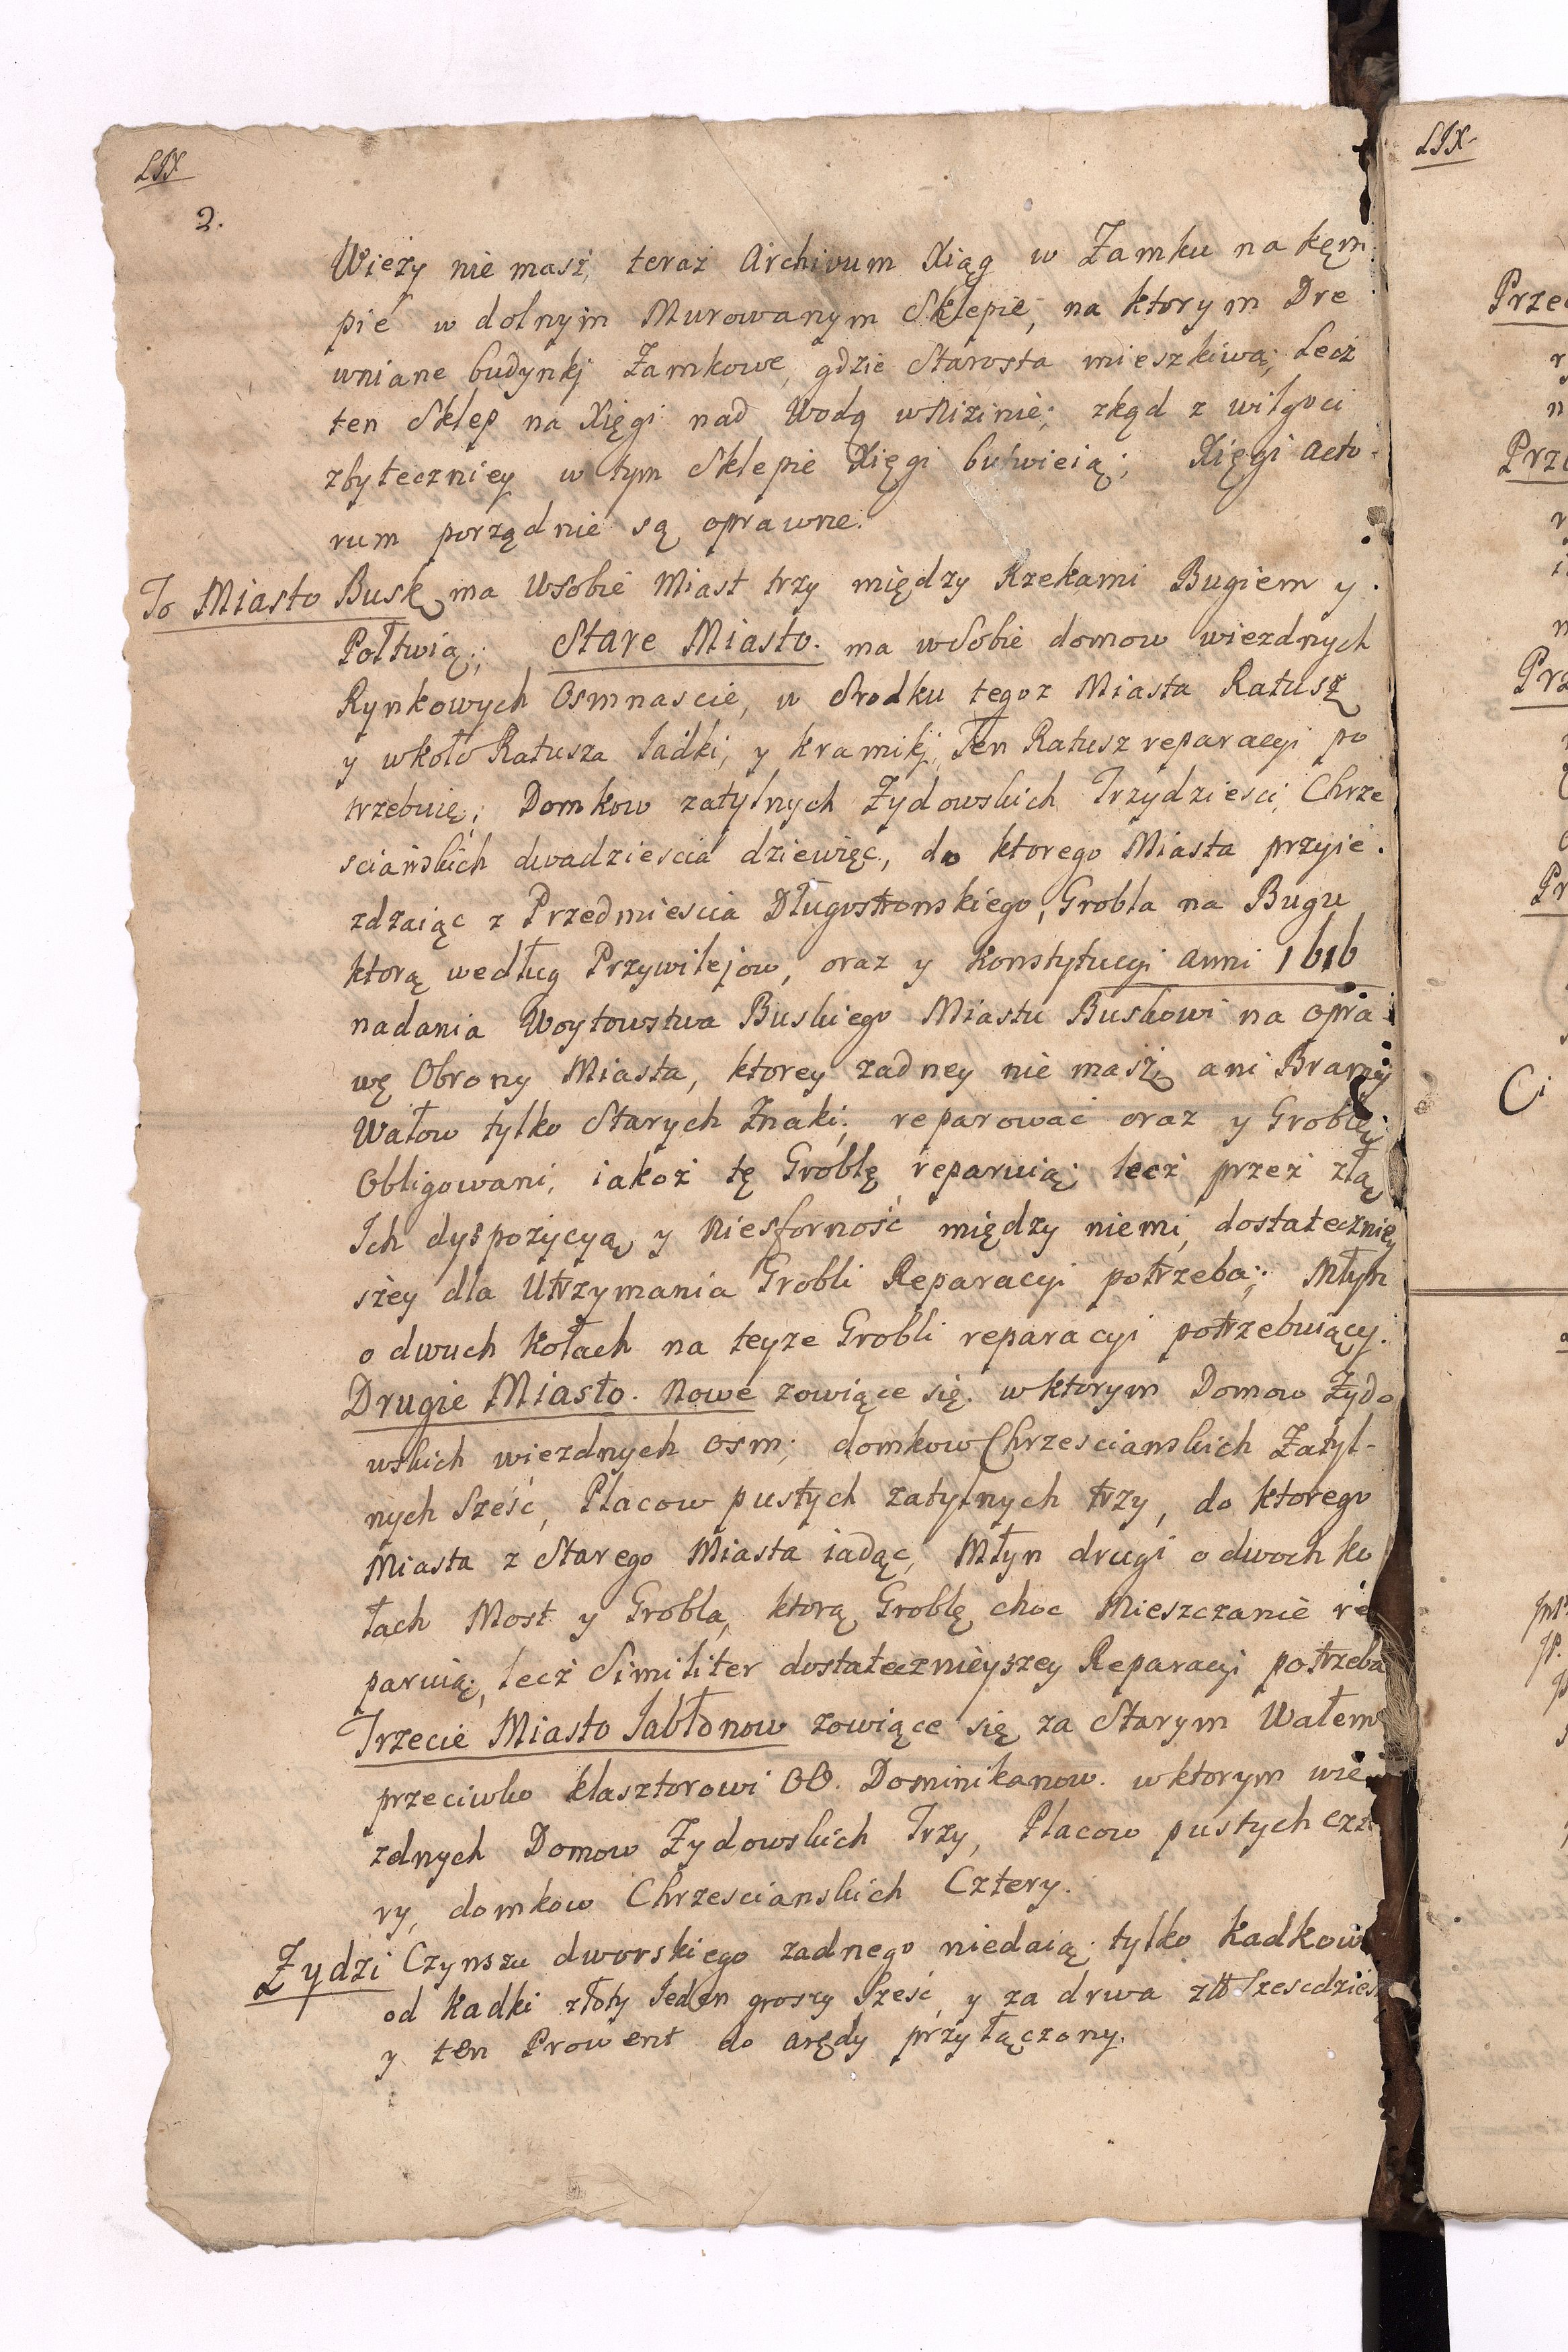 LIX
2.
Wieży nie masz, teraz Archivum Xiąg w Zamku na kęm
pie w dolnym Murowanym Sklepie, na ktorym Dre
wniane budynkj Zamkowe, gdzie Starosta mieszkiwa; Lecz
ten Sklep na Xięgi nad Wodą w Nizinie; zkąd z wilgoci
zbyteczniey w tym Sklepie Xięgi butwieią; Xięgi acto-
rum porządnie są oprawne.
To Miasto Busk ma W sobie Miast trzy między Rzekami Bugiem y
Połtwią; Stare Miasto. ma w Sobie domow wiezdnych
Rynkowych Osmnascie, w Srodku tegoz Miasta Ratusz
y wkoło Ratusza Iadki, y kramikj, Ten Ratusz reparacyi po
trzebuię; Domkow zatylnych Zydowskich Trzydziesci, Chrze
scianskich dwadziescia dziewięc, do ktorego Miasta przyie.
zdzaiąc z Przedmiescia Długostronskiego, Grobla na Bugu
ktorą według Przywilejow, oraz y Konstytucyi anni 1616
nadania Woytowstwa Buskiego Miastu Buskowi na opra
wę Obrony Miasta, ktorey zadney nie masz, ani Bramy
Wałow tylko Starych Znaki; reparować oraz y Groblę
Obligowani, iakoż tę Groblę reparuią; lecz przez złą
Ich dyspozycyą y niesforność między niemi, dostateczniey
szey dla Utrzymania Grobli Reparacyi potrzeba; Młyn
o dwuch Kołach na teyze Grobli reparacyi potrzebuiący.
Drugie Miasto. Nowe zowiące się. w ktorym Domow Zydo
wskich wiezdnych osm; domkow Chrzescianskich Zatyl-
nych Sześć, Placow pustych zatylnych trzy, do ktorego
Miasta z Starego Miasta iadąc, Młyn drugi o dwoch ko
łach Most y Grobla, ktorą Groblę choc Mieszczanie re
paruią, lecz Similiter dostatecznieyszey Reparacyi potrzeba
Trzecie Miasto Iabłonow zowiące się za Starym Wałem
przeciwko klasztorowi OO. Dominikanow. w ktorym wie
zdnych Domow Zydowskich Trzy, Placow pustych czte
ry, domkow Chrzescianskich Cztery.
Zydzi Czynszu dworskiego zadnego niedaią; tylko Kadkowe
od Kadki złoty Ieden groszy Sześć, y za drwa Szescdzies
y ten Prowent do arędy przyłączony.
LIX
Ci